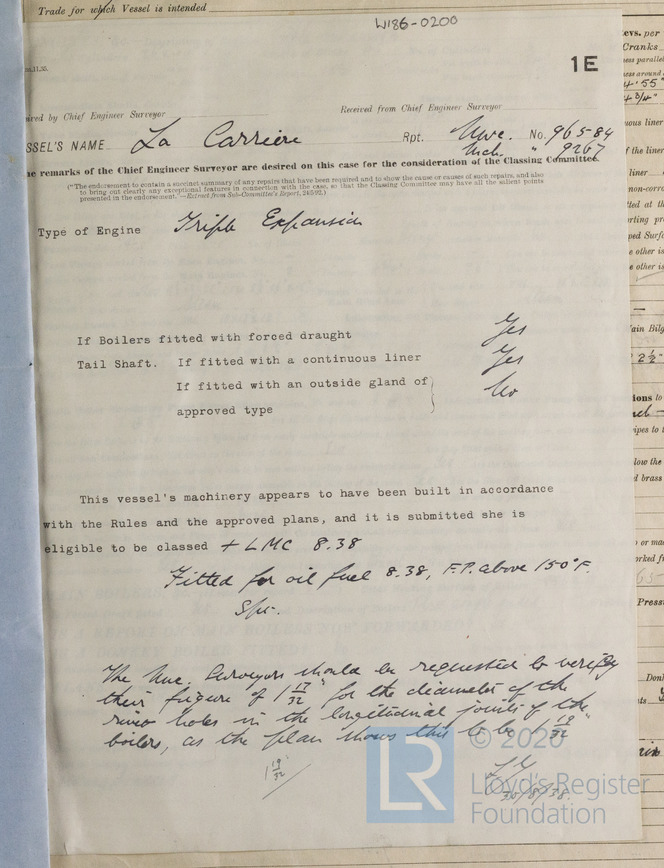 Trade for which Vessel is intended
W186-0200
1E
ired by Chief Engineer Surveyor
Received from Chief Engineer Surveyor
SSEL'S NAME La Carriere Rpt. Nwc. No. 96584
Mch. " 9267
he remarks of the Chief Engineer Surveyor are desired on this case for the consideration of the Classing Committee.
("The endorsement to contain a succinct summary of any repairs that have been required and to show the cause or causes of such repairs, and also
to bring out clearly any exceptional features in connection with the case, so that the Classing Committee may have all the salient points
presented in the endorsement."—Extract from Sub-Committee's Report, 24/5/92.)
Type of Engine Triple Expansion
If Boilers fitted with forced draught Yes
Tail Shaft. If fitted with a continuous liner Yes
If fitted with an outside gland of } No
approved type
This vessel's machinery appears to have been built in accordance
with the Rules and the approved plans, and it is submitted she is
eligible to be classed + LMC 8.38
Fitted for oil fuel 8.38, F.P. above 150°F.
Spr.
The Nwc. Surveyors should be requested to verify
their figure of 1 17/32" for the diameter of the
rivet holes in the longitudinal joints of the
boilers, as the plan shows this to be 1 19/32"
1 19/32
30/8/38.
© 2020
LR
Lloyd's Register
Foundation
evs. per
Cranks
4.55"
4 3/4"
uous liner
f the liner
liner
non-corro
tted at th
rting pro
ped Surfa
e other is
e other is
ain Bilg
2 1/2"
ions to
ipes to t
low the
d brass
or ma
rked fr
Press
Don